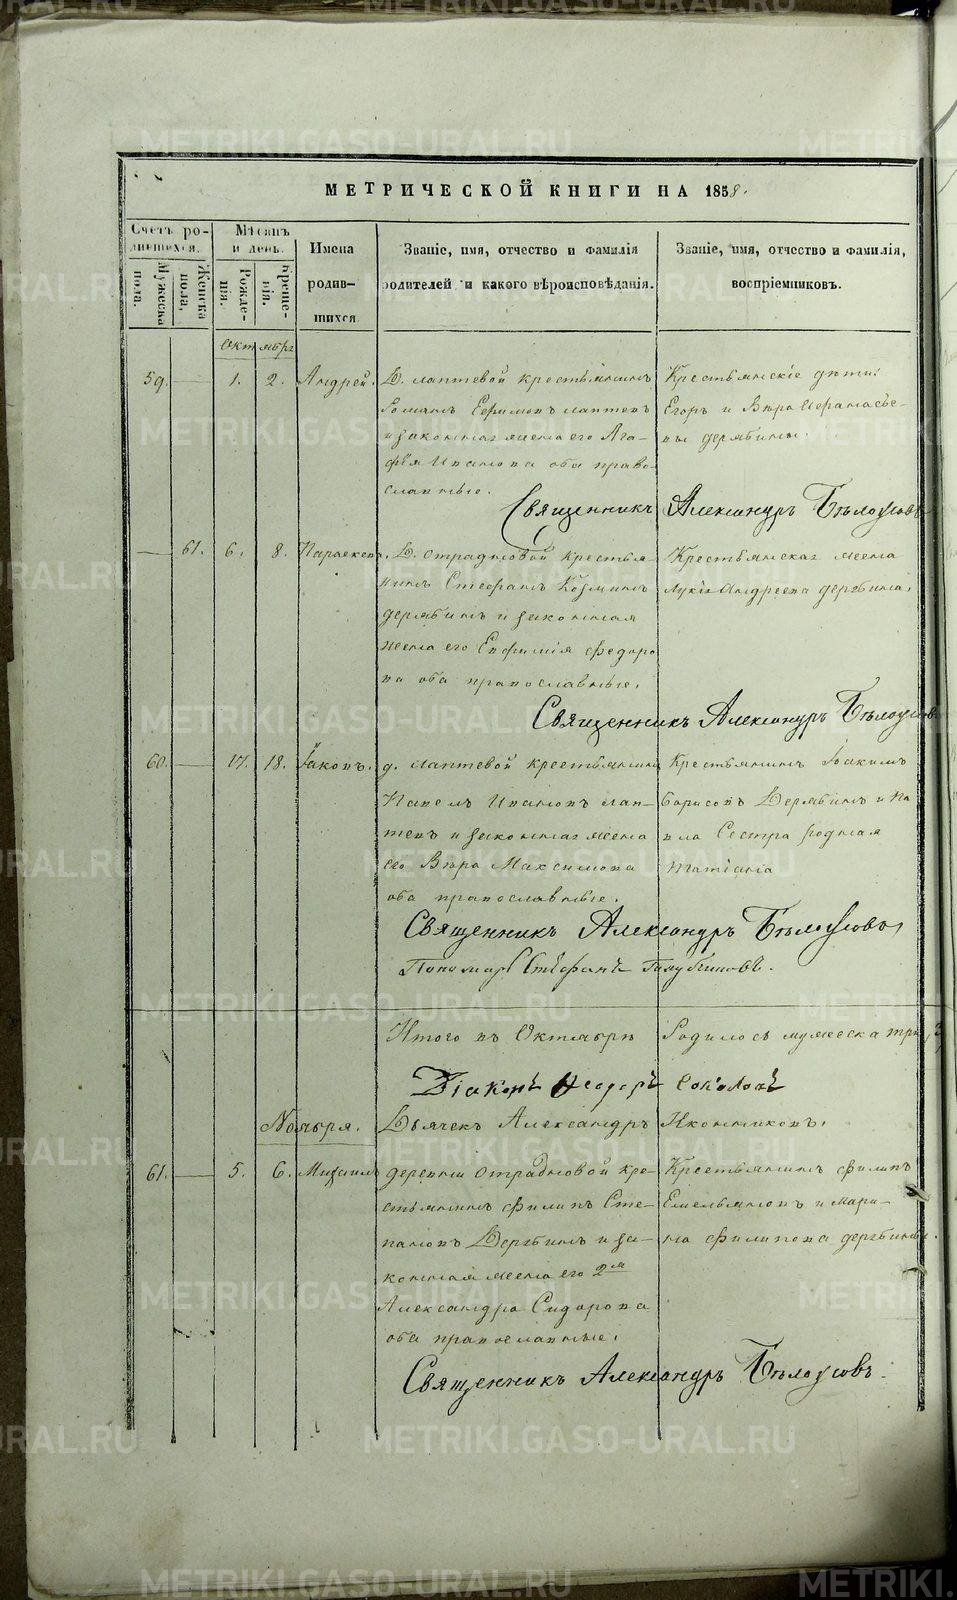 МЕТРИЧЕСКОЙ КНИГИ НА 1858.
Счетъ родившихся.
Мужеска пола.
Женска пола.
Мѣсяцъ и день.
Рожденія.
Крещенія.
Имена родившихся
Званіе, имя, отчество и фамилія
родителей и какого вѣроисповѣданія.
Званіе, имя, отчество и фамилія,
воспріемниковъ.
Октябрь
59. 1. 2. Андрей.
Д. Лаптевой крестьянинъ
Романъ Ефимовъ Лаптевъ
и законная жена его Ага-
фья Иванова оба право-
славные.
Крестьянскіе дѣти:
Егоръ и Вѣра
Дерябины.
Священникъ Александръ Бѣлоусовъ
61. 6. 8. Параскева.
Д. Отрадновой крестья-
нинъ Стефанъ Козминъ
Дерябинъ и законная
жена его Евфимія Федоро
ва оба православные.
Крестьянская жена
Лукія Андреева Дерябина.
Священникъ Александръ Бѣлоусовъ
60. 17. 18. Іаковъ.
д. Лаптевой крестьянинъ
Павелъ Ивановъ Лап-
тевъ и законная жена
его Вѣра Максимова
оба православные.
Крестьянинъ Іоакимъ
Борисовъ Дерябинъ и
Сестра родная
Татіана
Священникъ Александръ Бѣлоусовъ
Пономарь Стефанъ
Итого въ Октябрѣ Родилось мужеска три,
Діаконъ Ѳеодоръ Соколовъ
Ноября.
Дьячекъ Александръ Иконниковъ.
61. 5. 6. Михаилъ
деревни Отрадновой кре-
стьянинъ Филипъ Сте-
пановъ Дерябинъ и за-
конная жена его 2я
Александра Сидорова
оба православные.
Крестьянинъ Филипъ
Емельяновъ и Мари-
на Филипова Дерябины.
Священникъ Александръ Бѣлоусовъ.
METRIKI.GASO-URAL.RU